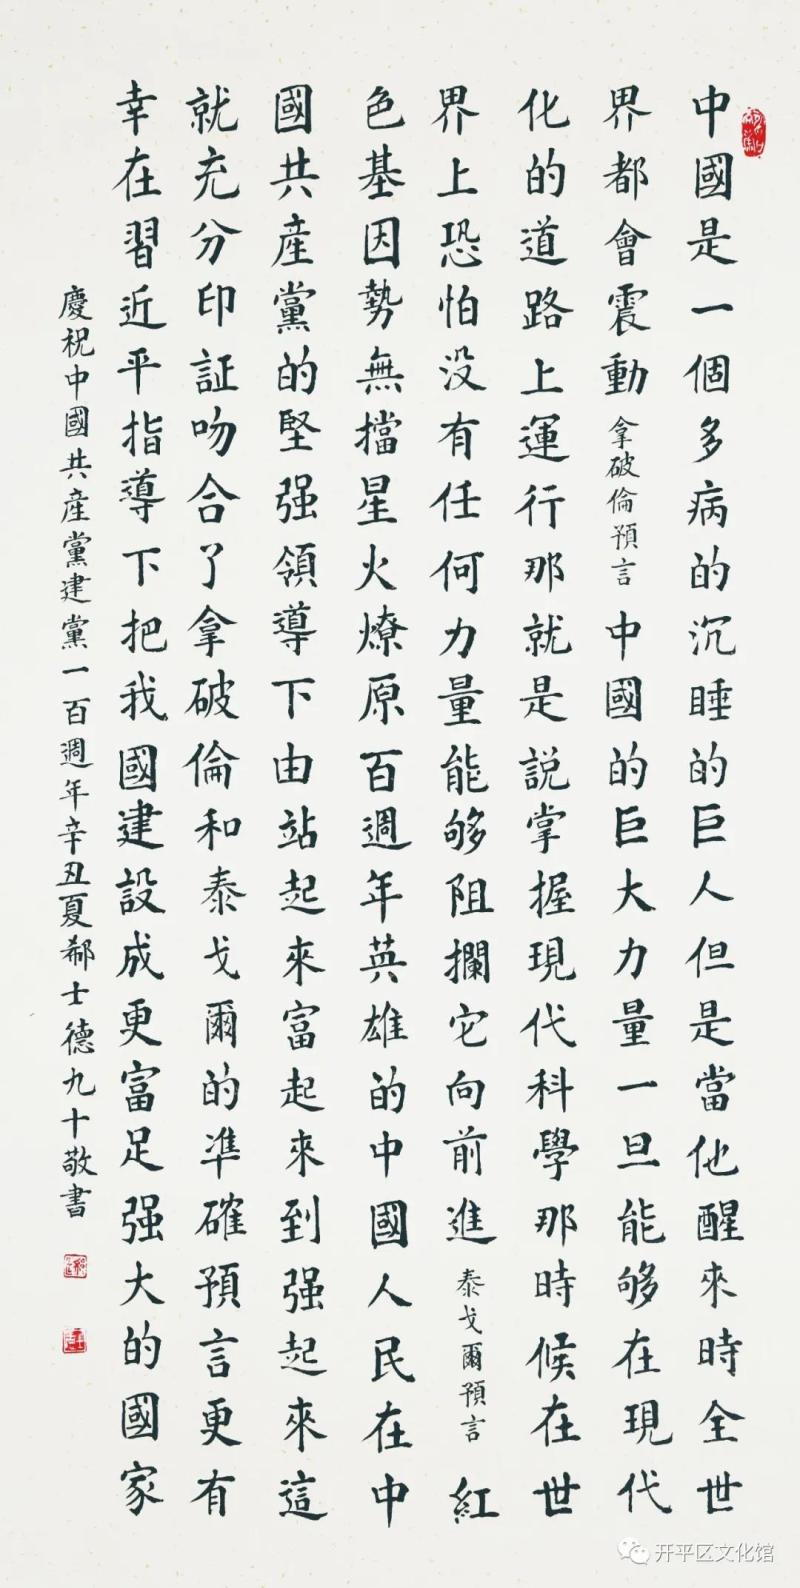 中國是一個多病的沉睡的巨人但是當他醒來時全世
界都會震動拿破倫預言中國的巨大力量一旦能够在現代
化的道路上運行那就是説掌握現代科學那時候在世
界上恐怕没有任何力量能够阻攔它向前進泰戈爾預言紅
色基因勢無擋星火燎原百週年英雄的中國人民在中
國共産黨的堅强領導下由站起來富起來到强起來這
就充分印証吻合了拿破倫和泰戈爾的準確預言更有
幸在習近平指導下把我國建設成更富足强大的國家
慶祝中國共産黨建黨一百週年辛丑夏郗士德九十敬書
开平区文化馆